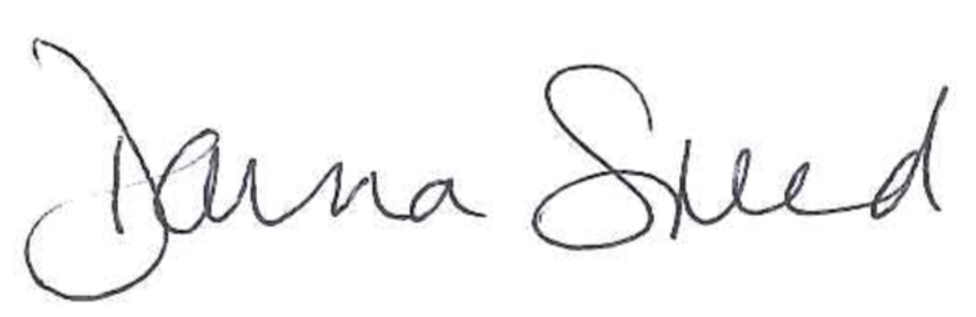 Danna Sneed